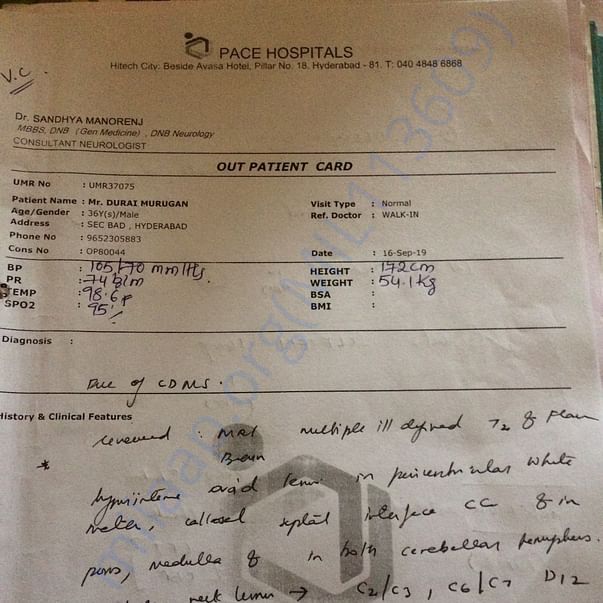 PACE HOSPITALS
Hitech City: Beside Avasa Hotel, Pillar No. 18. Hyderabad - 81. T: 040 4848 6868
V.C.
Dr. SANDHYA MANORENJ
MBBS, DNB (Gen Medicine), DNB Neurology
CONSULTANT NEUROLOGIST
OUT PATIENT CARD
UMR No : UMR37075
Patient Name : Mr. DURAI MURUGAN Visit Type : Normal
Age/Gender : 36Y(s)/Male Ref. Doctor : WALK-IN
Address : SEC BAD, HYDERABAD
Phone No : 9652305883
Cons No : OP80044 Date : 16-Sep-19
BP : 105/70 mmHg HEIGHT : 172cm
PR : 74 b/m WEIGHT : 54.1kg
TEMP : 98.6 F BSA :
SPO2 : 95% BMI :
Diagnosis :
of CDMS.
History & Clinical Features
reviewed : MRI multiple ill defined T2 & Flair
Brain
hyperintense ovoid lesions in periventricular white
matter, callosal septal interface CC & in
pons, medulla & in both cerebellar hemispheres.
lesions → C2/C3, C6/C7 D12
milaap.org(MIL113609)